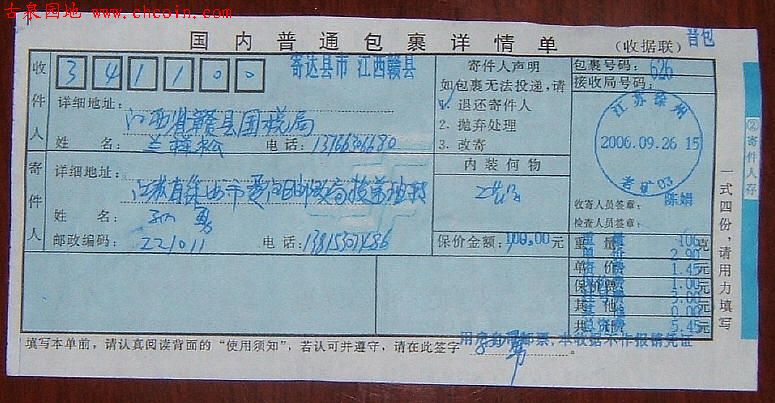 古泉园地 www.chcoin.com
国内普通包裹详情单
(收据联)
普包
收件人
341100
寄达县市 江西赣县
详细地址:
江西省赣县国税局
姓名:
电话: 13766301680
寄件人
详细地址:
姓名:
孙勇
邮政编码: 221011
电话: 13815301486
寄件人声明
如包裹无法投递,请
1. 退还寄件人
2. 抛弃处理
3. 改寄
内装何物
保价金额: 100.00 元
包裹号码: 626
接收局号码:
江苏徐州
2006.09.26 15
收寄人员签章: 陈娟
检查人员签章:
重量 106 克
单价 2.00 元
1.45 元
保价费 1.00 元
其他 3.00 元
共计 5.45 元
用户自用邮票,本收据不作报销凭证
填写本单前,请认真阅读背面的“使用须知”,若认可并遵守,请在此签字
②寄件人存
一式四份,请用力填写